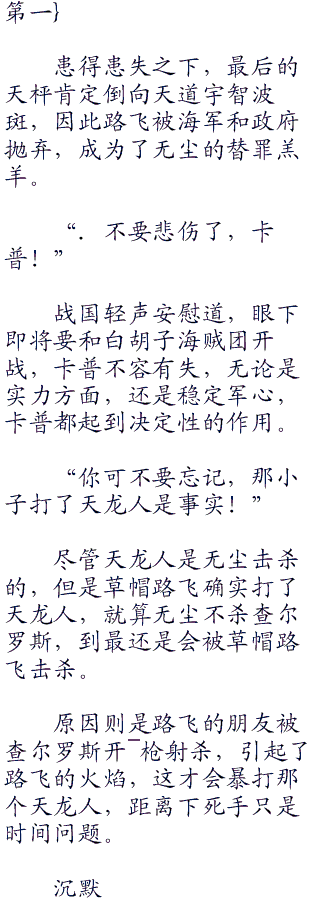 第一}
患得患失之下，最后的
天枰肯定倒向天道宇智波
斑，因此路飞被海军和政府
抛弃，成为了无尘的替罪羔
羊。
“．不要悲伤了，卡
普！”
战国轻声安慰道，眼下
即将要和白胡子海贼团开
战，卡普不容有失，无论是
实力方面，还是稳定军心，
卡普都起到决定性的作用。
“你可不要忘记，那小
子打了天龙人是事实！”
尽管天龙人是无尘击杀
的，但是草帽路飞确实打了
天龙人，就算无尘不杀查尔
罗斯，到最还是会被草帽路
飞击杀。
原因则是路飞的朋友被
查尔罗斯开¯枪射杀，引起了
路飞的火焰，这才会暴打那
个天龙人，距离下死手只是
时间问题。
沉默